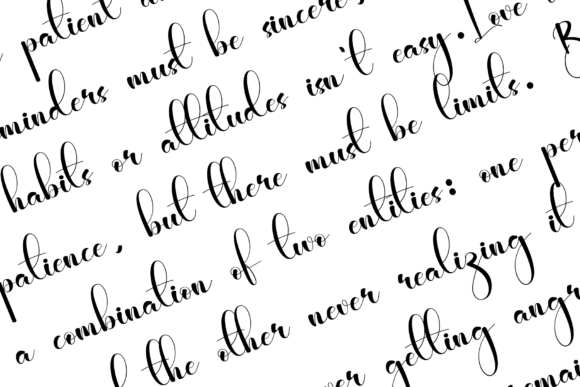 patient
minders must be sincere,
habits or attitudes isn't easy. Love
patience, but there must be limits. B
a combination of two entities: one per
the other never realizing it
getting angr